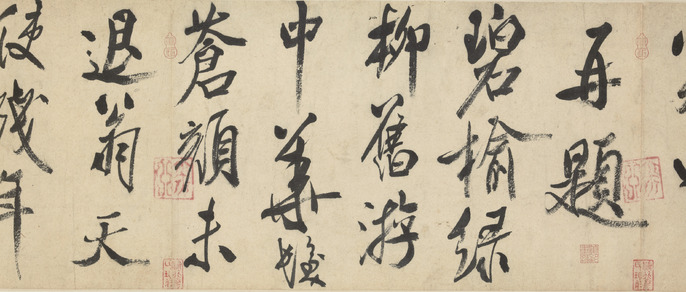 再題
碧榆綠
柳舊游
中華髮
蒼顏未
退翁天
使殘年